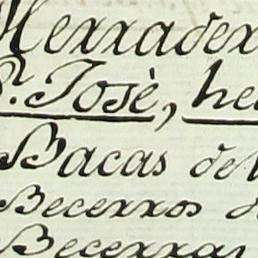 Herrader
Sr. Josè, he
Bacas de
Becerros d
Becerras